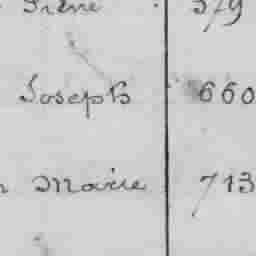 Irène . 379
Joseph 660
n Marie 713